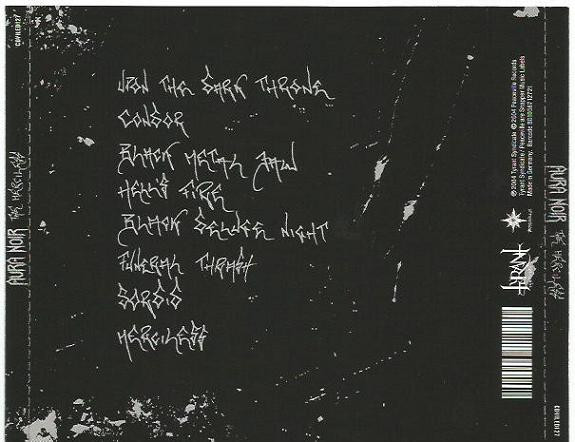 UPON THE DARK THRONE
CONDOR
BLACK METAL JAW
HELL'S FIRE
BLACK DELUGE NIGHT
FUNERAL THRASH
SORDID
MERCILESS
AURA NOIR THE MERCILESS
CDVILED127
AURA NOIR THE MERCILESS
CDVILED127
TYRANT
℗2004 Tyrant Syndicate © 2004 Peaceville Records
Tyrant Syndicate / Peaceville are Snapper Music Labels
Made in Germany.